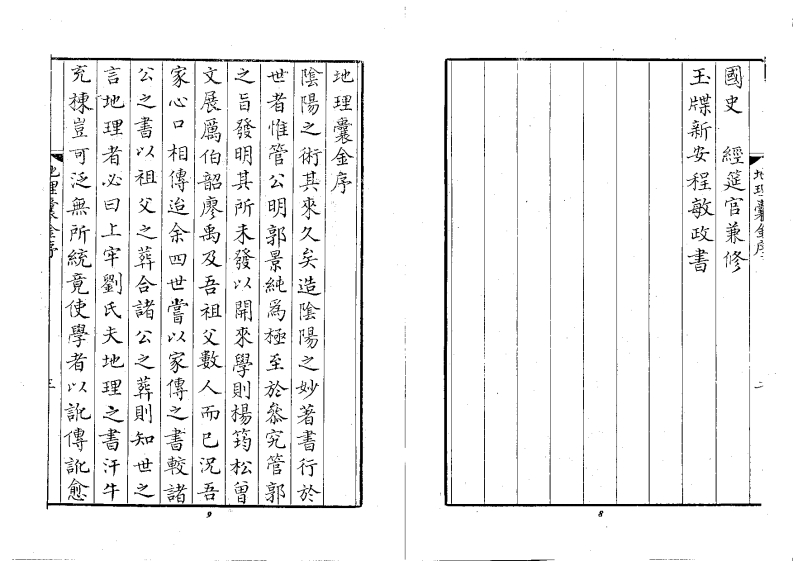 國史　經筵官兼修
玉牒新安程敏政書
地理囊金序
二
8
地理囊金序
陰陽之術其來久矣造陰陽之妙著書行於
世者惟管公明郭景純爲極至於叅究管郭
之旨發明其所未發以開來學則楊筠松曾
文展厲伯韶廖禹及吾祖父數人而已況吾
家心口相傳迨余四世嘗以家傳之書較諸
公之書以祖父之葬合諸公之葬則知世之
言地理者必曰上牢劉氏夫地理之書汗牛
充棟豈可泛無所統竟使學者以訛傳訛愈
地理囊金序
三
9